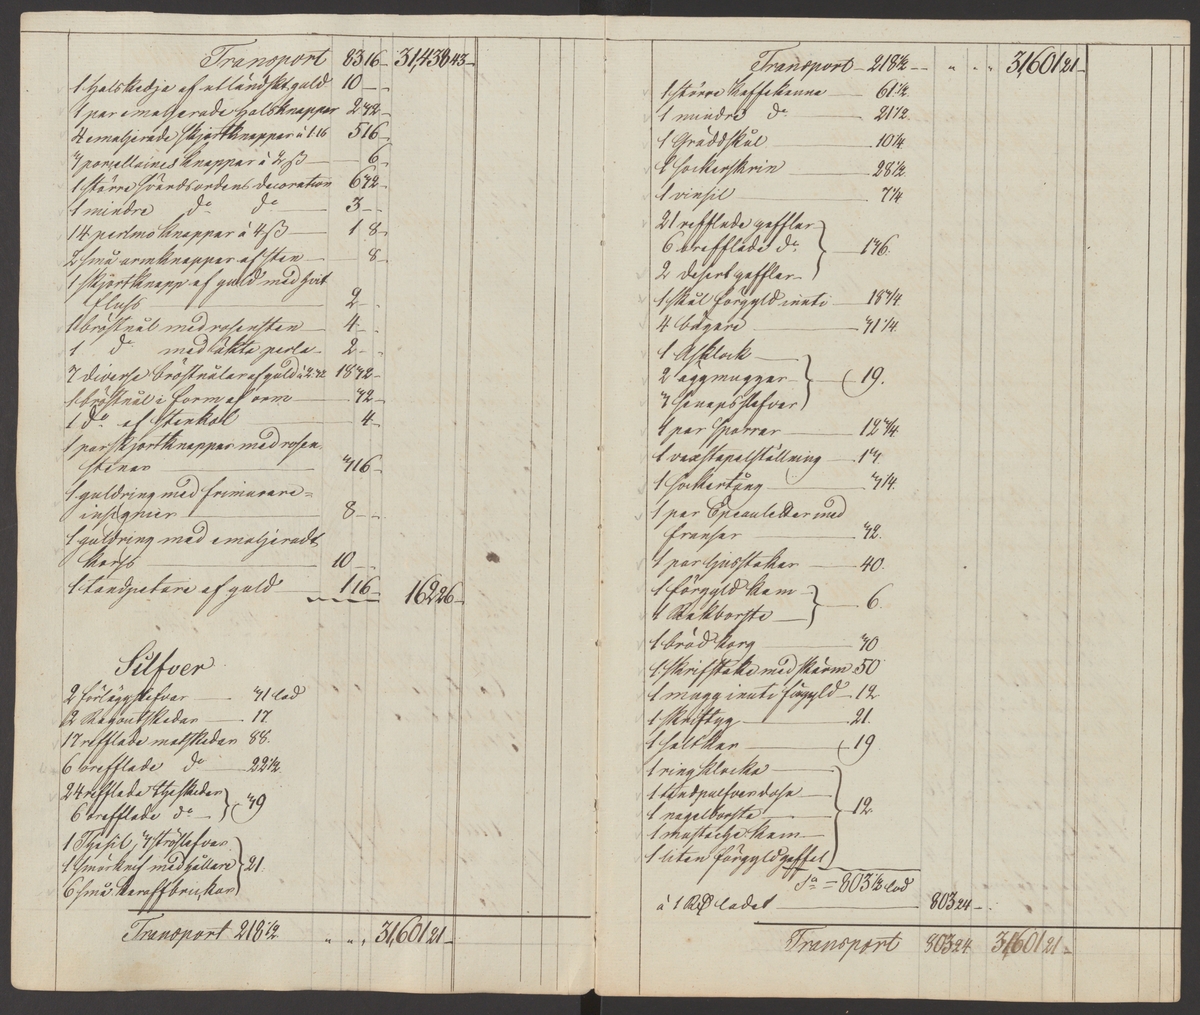 Transport 83 16 31,438 43
1 halskedja af utländskt guld 10
1 par emaljerade halsknappar 2 32
4 emaljerade skjortknappar à 1.16 5 16
3 porcellaines knappar à 2 ß 6
1 större Svärdsordens decoration 6 32
1 mindre do do 3
14 perlmo knappar à 4 ß 1 8
2 små armknappar af sten 8
1 skjortknapp af guld med hvit
fluss 2
1 bröstnål med rosensten 4
1 do med äkta perla 2
7 diverse bröstnålar af guld à 2.32 18 32
1 bröstnål i form af orm 32
1 do af stenkol 4
1 par skjortknappar med rosen
stenar 3 16
1 guldring med frimurare=
insignier 8
1 guldring med emaljeradt
kors 10
1 tandpetare af guld 1 16 162 26
Silfver
2 förläggskefvar 31 lod
2 Ragoutskedar 17
17 refflade matskedar 88
6 orefflade do 22 1/2
24 refflade theskedar
6 orefflade do 39
1 Thesil, 3 ströslefvar
1 smörknif med gällare
6 små karaffbrickor 21
Transport 218 1/2 " " , 31,601 21
Transport 218 1/2 " " 31,601 21
1 större kaffekanna 61 1/2
1 mindre do 21 1/2
1 Gräddskål 10 1/4
1 sockerskrin 28 1/2
1 vinsil 7 1/4
21 refflade gafflar
6 orefflade do 136
2 desert gafflar
1 skål förgyld inuti 18 3/4
4 bägare 31 1/4
1 Ask lock
2 äggmuggar 19.
3 senapsslefvar
1 par sporrar 12 3/4
1 vaxstapelställning 13
1 sockertång 3 1/4
1 par Epauletter med
fransar 32
1 par ljusstakar 40
1 förgyld kam
1 Rakborste 6
1 brödkorg 30
1 skrifstake med skärm 50
1 mugg inuti förgyld 12
1 skriftyg 21
1 saltkar 19
1 ringklocka
1 tandpulverdosa
1 nagelborste 12
1 mustache kam
1 liten förgyld gaffel
Sa = 803 1/2 lod
à 1 RD lodet 803 24
Transport 803 24 31,601 21